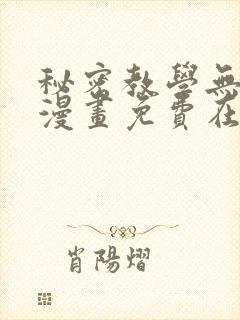 秘密教學無
漫畫免費在
肖陽熠